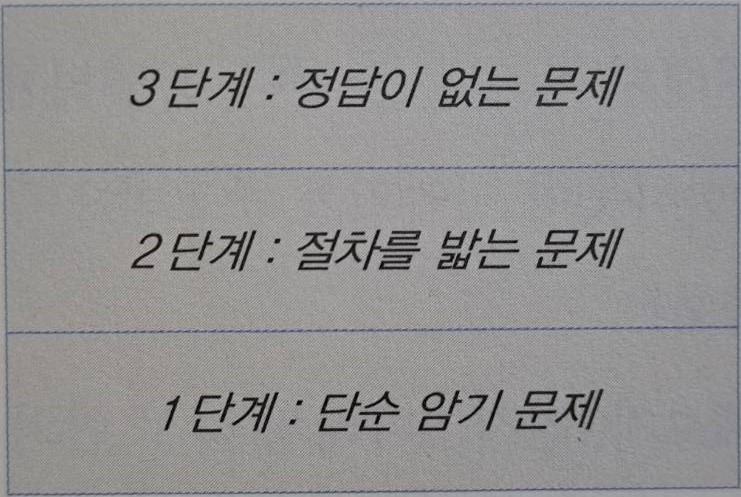 3단계 : 정답이 없는 문제
2단계 : 절차를 밟는 문제
1단계 : 단순 암기 문제